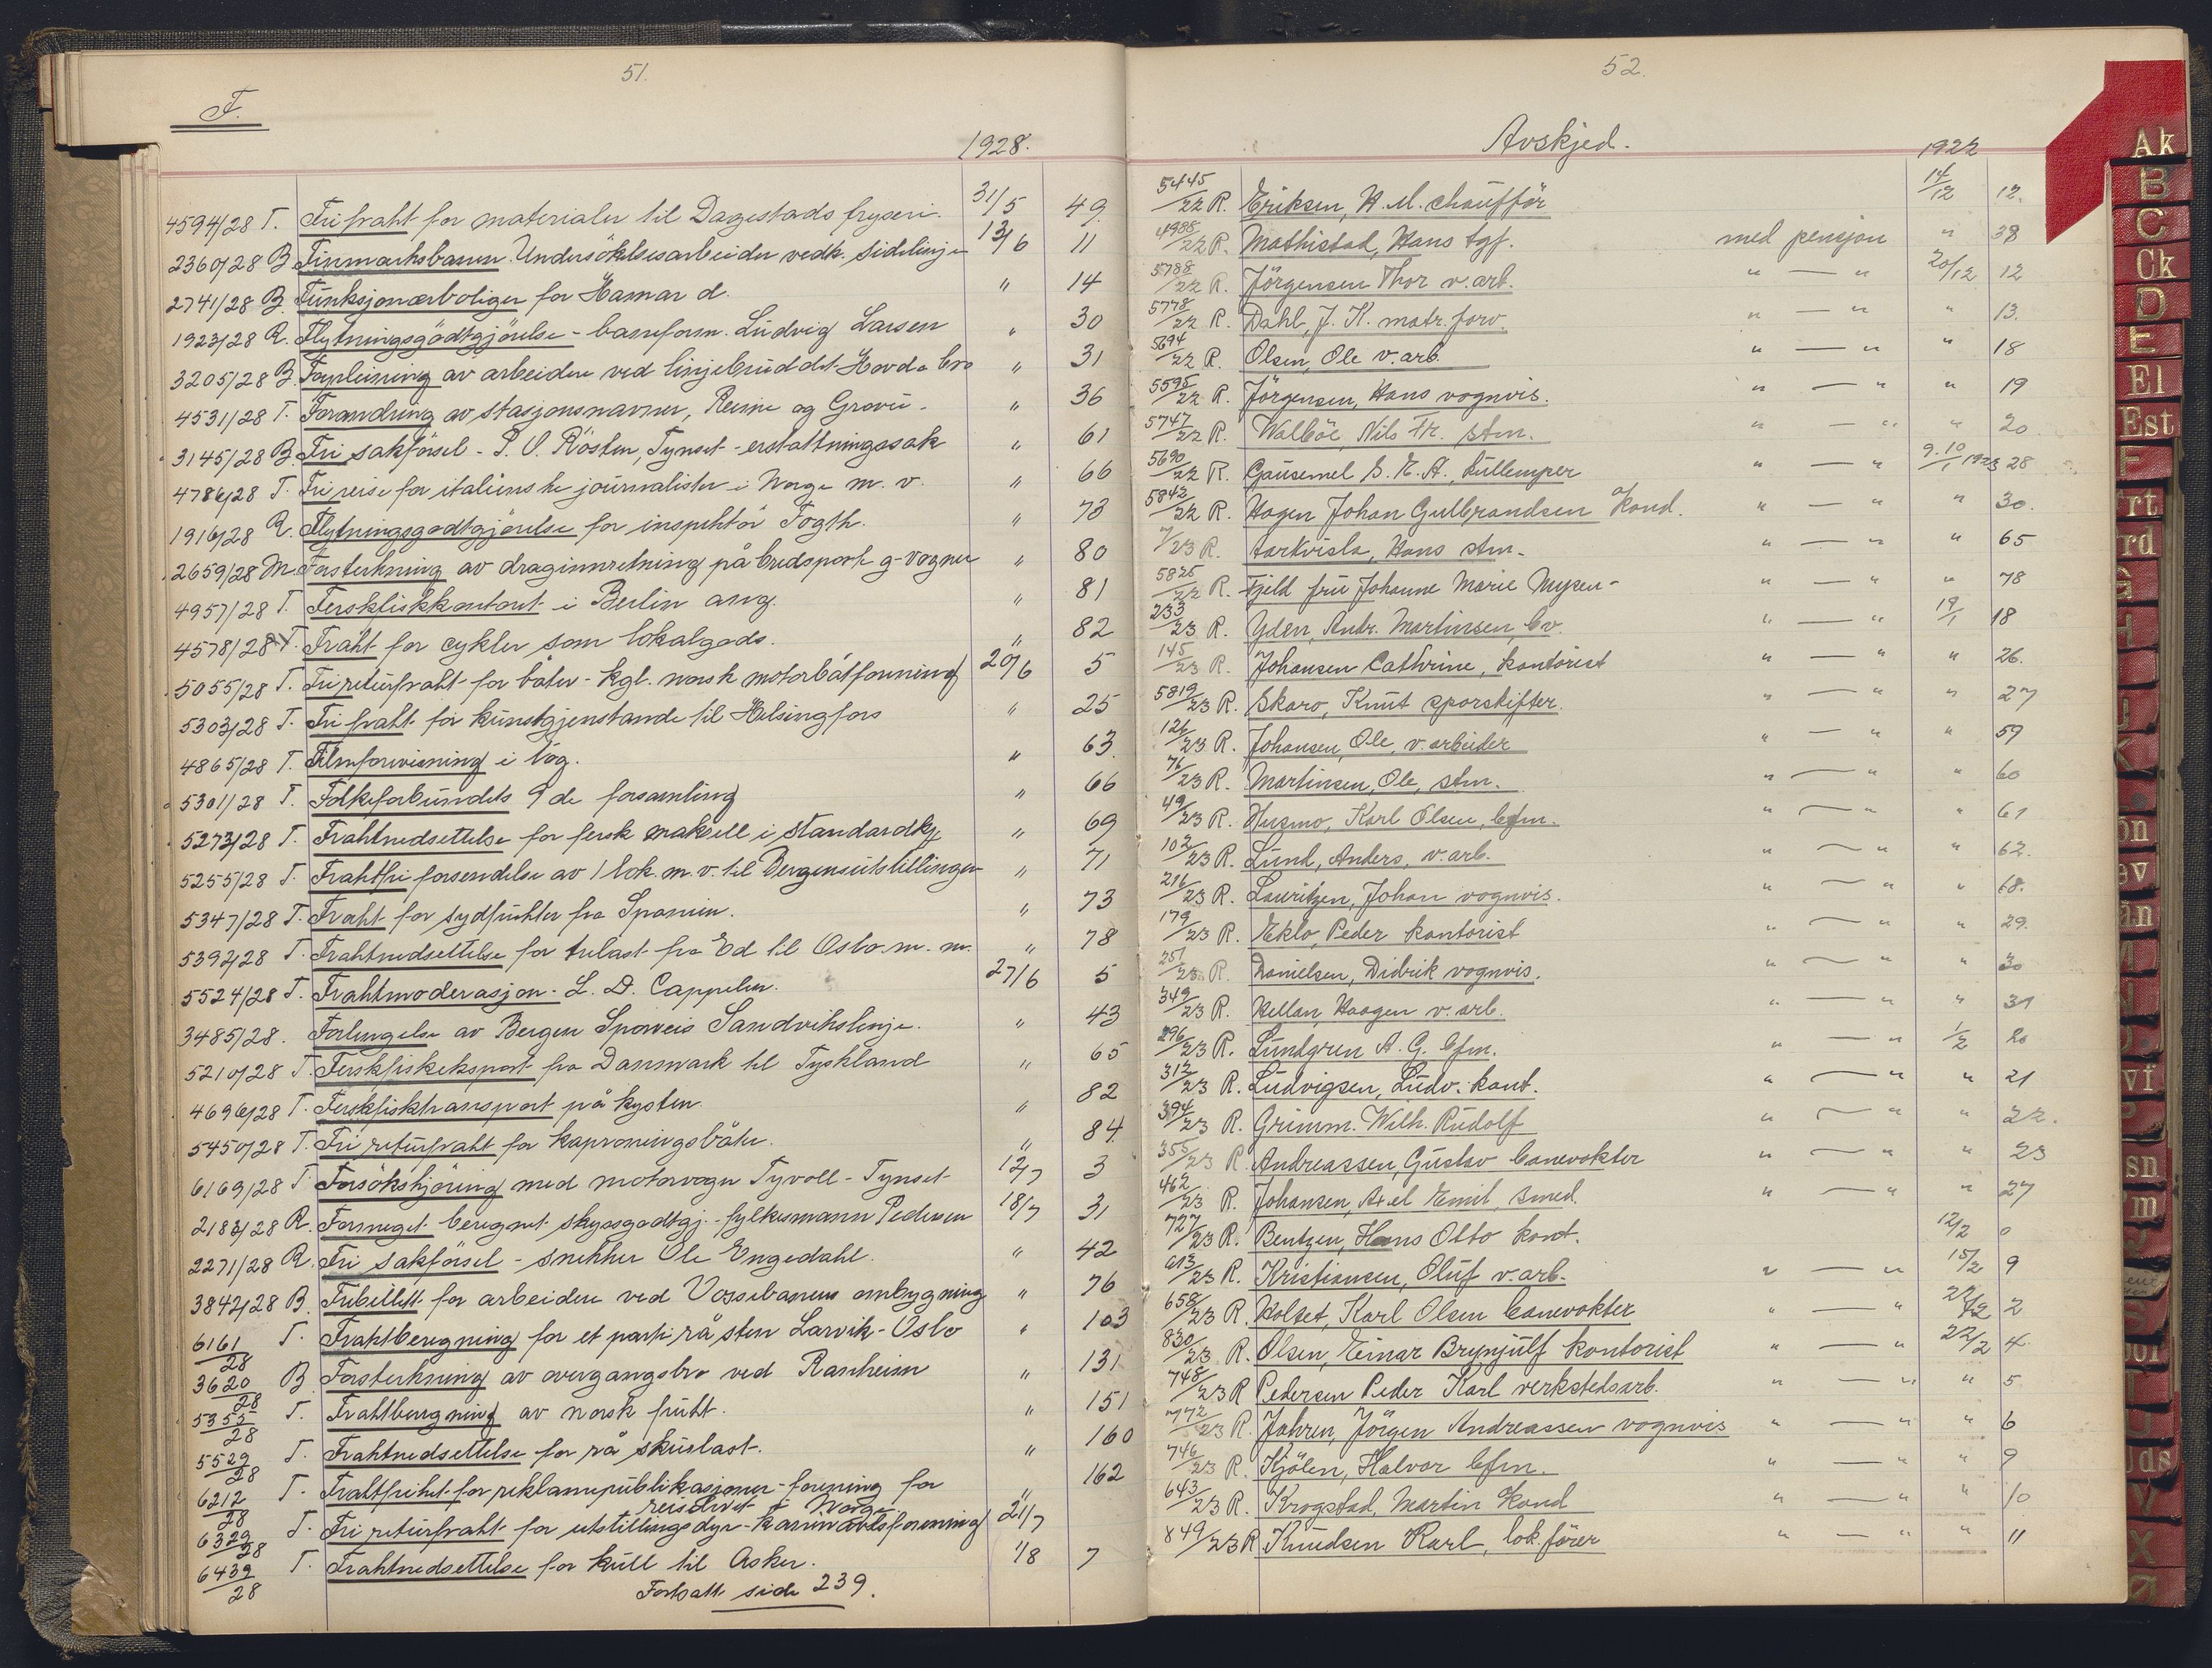 51.
F.
1928.
4594/28 T. Fri fraht for materialer til Dagestads fryseri. 31/5 49
2360/28 B. Finmarksbanen. Undersökelsesarbeider vedk. sidelinje 13/6 11
2741/28 B. Funksjonærboliger for Hamar d. " 14
1923/28 R. Flytningsgodtgjörelse - baneform. Ludvig Larsen " 30
3205/28 B. Forpleining av arbeidere ved linjebruddet Hovda bro " 31
4531/28 T. Forandring av stasjonsnavner, Reine og Gravu - " 36
3145/28 B. Fri sakförsel - P. O. Rösten, Tynset - erstattningssak " 61
4786/28 T. Fri reise for italienske journalister i Norge m. v. " 66
1916/28 R. Flytningsgodtgjörelse for inspektör Fogth. " 73
2659/28 M. Forsterkning av draginnretning på bredspork g-vogner " 80
4957/28 T. Ferskfiskkontoret i Berlin ang. " 81
4578/28 T. Fraht for cykler som lokalgods. " 82
5055/28 T. Fri returfraht for båter - kgl. norsk motorbåtforening 20/6 5
5303/28 T. Fri fraht for kunstgjenstande til Helsingfors " 25
4865/28 T. Filmforevisning i tog. " 63
5301/28 T. Folkeforbundets 9de forsamling " 66
5273/28 T. Frahtnedsettelse for fersk makrell i standardkj. " 69
5255/28 T. Frahtfri forsendelse av 1 lok. m. v. til Bergensutstillingen " 71
5347/28 T. Fraht for sydfrukter fra Spanien. " 73
5392/28 T. Frahtnedsettelse for trelast fra Ed til Oslo m. m. " 78
5524/28 T. Frahtmoderasjon - L. D. Cappelen. 27/6 5
3485/28. Forlengelse av Bergen Sporveis Sandvikslinje. " 43
5210/28 T. Ferskfiskeksport fra Danmark til Tyskland " 65
4696/28 T. Ferskfisktransport på kysten " 82
5450/28 T. Fri returfraht for kaproningsbåter. " 84
6169/28 T. Forsökskjöring med motorvogn Tyvoll - Tynset 12/7 3
2183/28 R. Formeget beregnet skyssgodtgj. - fylkesmann Pedersen 18/7 31
2271/28 R. Fri sakförsel - snekker Ole Engedahl. " 42
3842/28 B. Fribillett for arbeidere ved Vossebanens ombygning " 76
6161/28 T. Frahtberegning for et parti rå sten Larvik - Oslo " 103
3620/28 B Forsterkning av overgangsbro ved Ranheim " 131
5355/28 T. Frahtberegning av norsk frukt. " 151
5529/28 T. Frahtnedsettelse for rå skurlast. " 160
6212/28 T. Frahtfrihet for reklamepublikasjoner - forening for " 162
reiselivet i Norge
6329/28 T. Fri returfraht for utstillingsdyr - kaninavlsforening 21/7
6439/28 T. Frahtnedsettelse for kull til Asker. 1/8 7
Fortsatt side 239.
52.
Avskjed.
1922
5445/22 R. Eriksen, H. M. chaufför 14/12 12.
4988/22 R. Mathistad, Hans tgf. med pensjon " 38
5788/22 R. Jörgensen Thor v. arb. " — " 20/12 12
5778/22 R. Dahl, J. K. matr. forv. " — " " 13.
5694/22 R. Olsen, Ole v. arb. " — " " 18
5595/22 R. Jörgensen, Hans vognvis. " — " " 19
5747/22 R. Walböe, Nils Fr. stm. " — " " 20
5690/22 R. Gausemel S. E. A., kullemper " — " 9.10/1 1923 28
5842/22 R. Hagen Johan Gulbrandsen kond. " — " " 30.
7/23 R. Aarkvisla, Hans stm. " — " " 65
5825/22 R. Fjeld fru Johanne Marie Mysen - " — " " 78
233/23 R. Yden, Andr. Martinsen, bv. " — " 19/1 18
145/23 R. Johansen Cathrine, kontorist " — " " 26.
5819/23 R. Skaro, Knut sporskifter. " — " " 27
126/23 R. Johansen, Ole, v. arbeider " — " " 59
76/23 R. Martinsen, Ole, stm. " — " " 60
49/23 R. Husmo, Karl Olsen, bfm. " — " " 61
102/23 R. Lund, Anders, v. arb. " — " " 62.
216/23 R. Lauritzen, Johan vognvis. " — " " 68.
179/23 R. Eklo, Peder kontorist " — " " 29.
251/23 R. Danielsen, Didrik vognvis. " — " " 30
349/23 R. Hellan, Haagen v. arb. " — " " 31
296/23 R. Lundgren A. G. bfm. " — " 1/2 20
312/23 R. Ludvigsen, Ludv. kont. " — " " 21
394/23 R. Grimm. Wilh. Rudolf " — " " 22.
355/23 R. Andreassen, Gustav banevokter " — " " 23
462/23 R. Johansen, Axel Emil, smed. " — " " 27
727/23 R. Bentzen, Hans Otto kont. 12/2 0
613/23 R. Kristiansen, Oluf v. arb. " — " 15/2 9
658/23 R. Holset, Karl Olsen banevokter " — " 22/2 2
830/23 R. Olsen, Einar Brynjulf kontorist " — " 22/2 4
748/23 R Pedersen Peder Karl verkstedsarb. " — " " 5
772/23 R. Jahren, Jörgen Andreassen vognvis " — " " 6
746/23 R. Kjölen, Halvor bfm. " — " " 9
643/23 R. Krogstad, Martin kond " — " " 10
849/23 R Knudsen Karl, lok. förer " — " " 11
Ak
B
C
Ck
D
E
El
Est
F